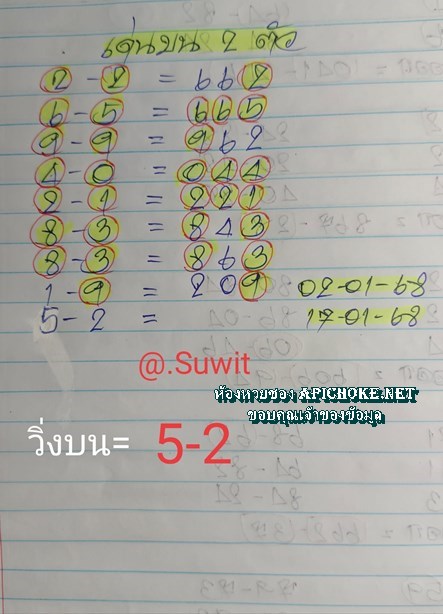 เด่นบน 2 ตัว
2 - 2 = 662
6 - 5 = 665
9 - 9 = 962
4 - 0 = 044
2 - 1 = 221
8 - 3 = 843
8 - 3 = 863
1 - 9 = 209 02-01-68
5 - 2 = 17-01-68
@.Suwit
ห้องหวยซอง APICHOKE.NET
ขอบคุณเจ้าของข้อมูล
วิ่งบน= 5-2